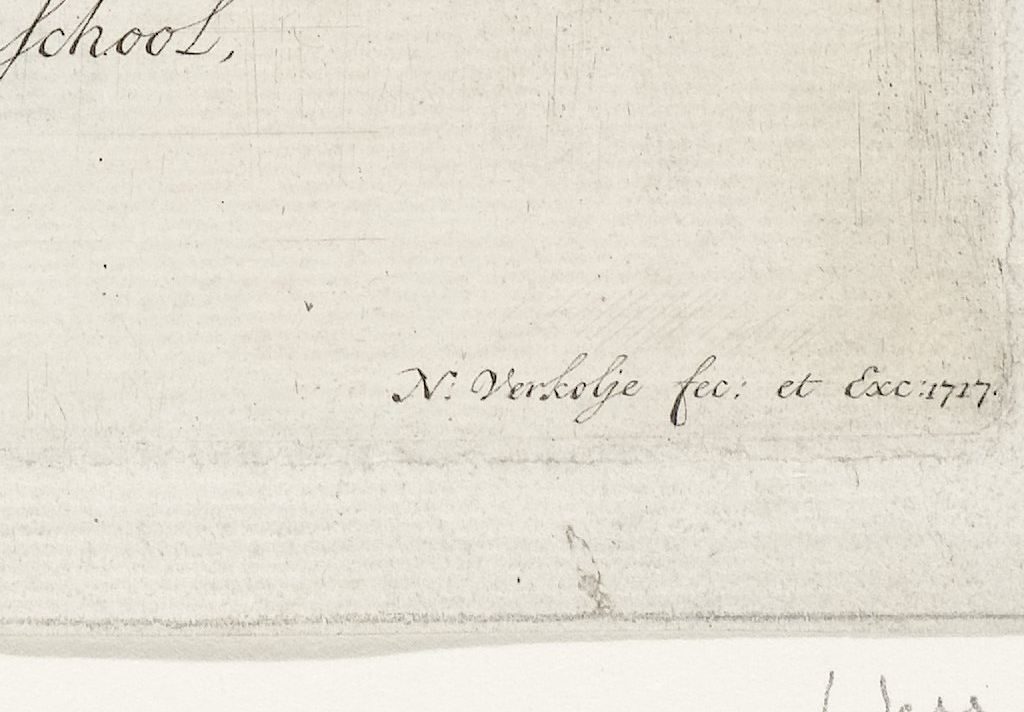 school,
N: Verkolje fec: et Exc: 1717.